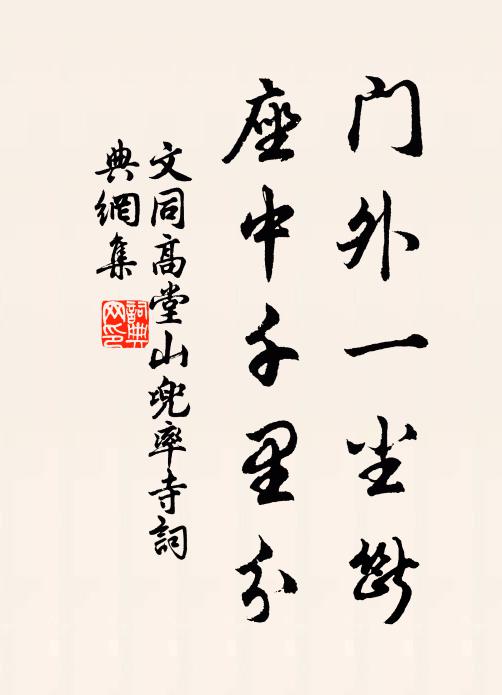 门外一尘断
座中千里分
文同高堂山兜率寺詞
典網集
詞典網印